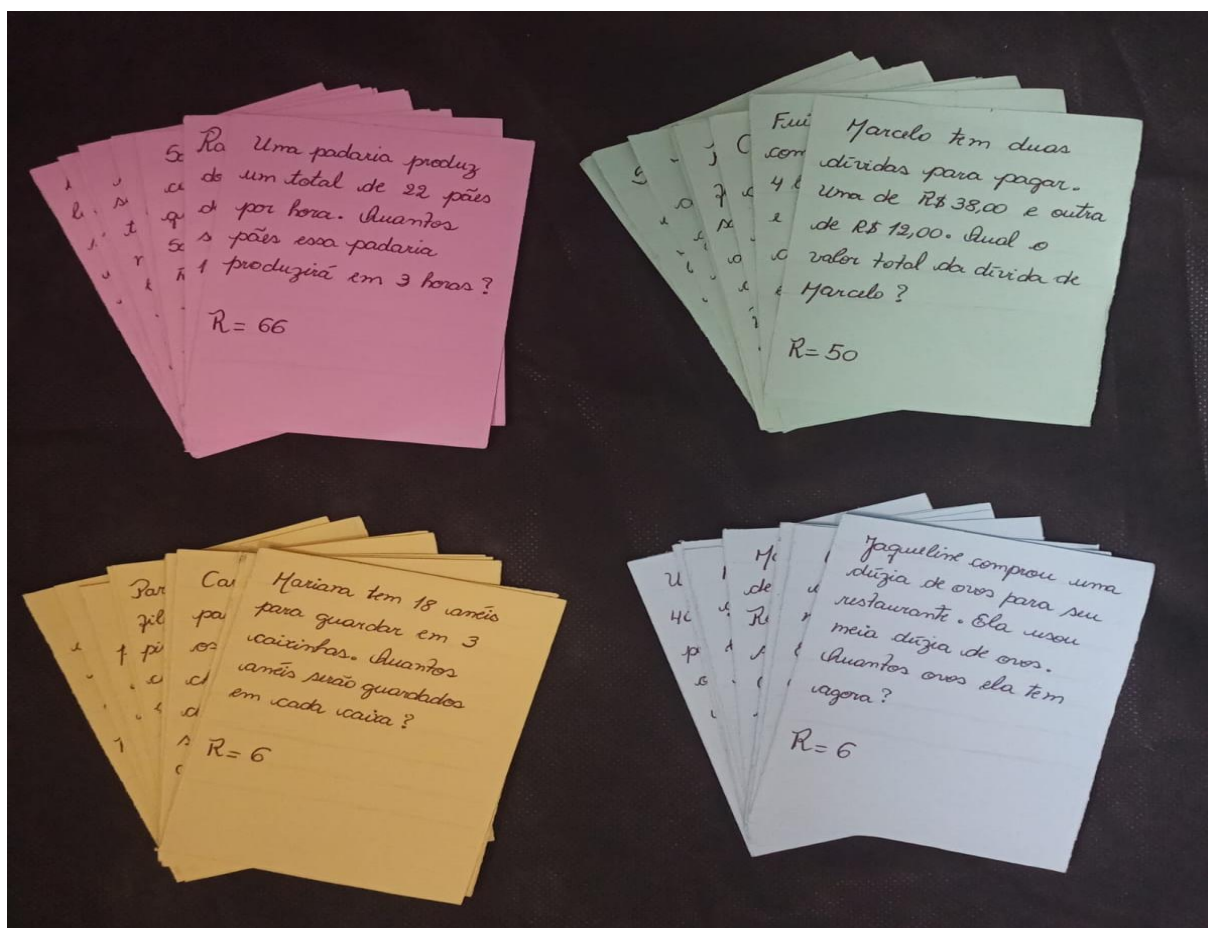 Uma padaria produz
um total de 22 pães
por hora. Quantos
pães essa padaria
produzirá em 3 horas?
R = 66
Marcelo tem duas
dívidas para pagar.
Uma de R$ 38,00 e outra
de R$ 12,00. Qual o
valor total da dívida de
Marcelo?
R = 50
Mariana tem 18 anéis
para guardar em 3
caixinhas. Quantos
anéis serão guardados
em cada caixa?
R = 6
Jaqueline comprou uma
dúzia de ovos para seu
restaurante. Ela usou
meia dúzia de ovos.
Quantos ovos ela tem
agora?
R = 6